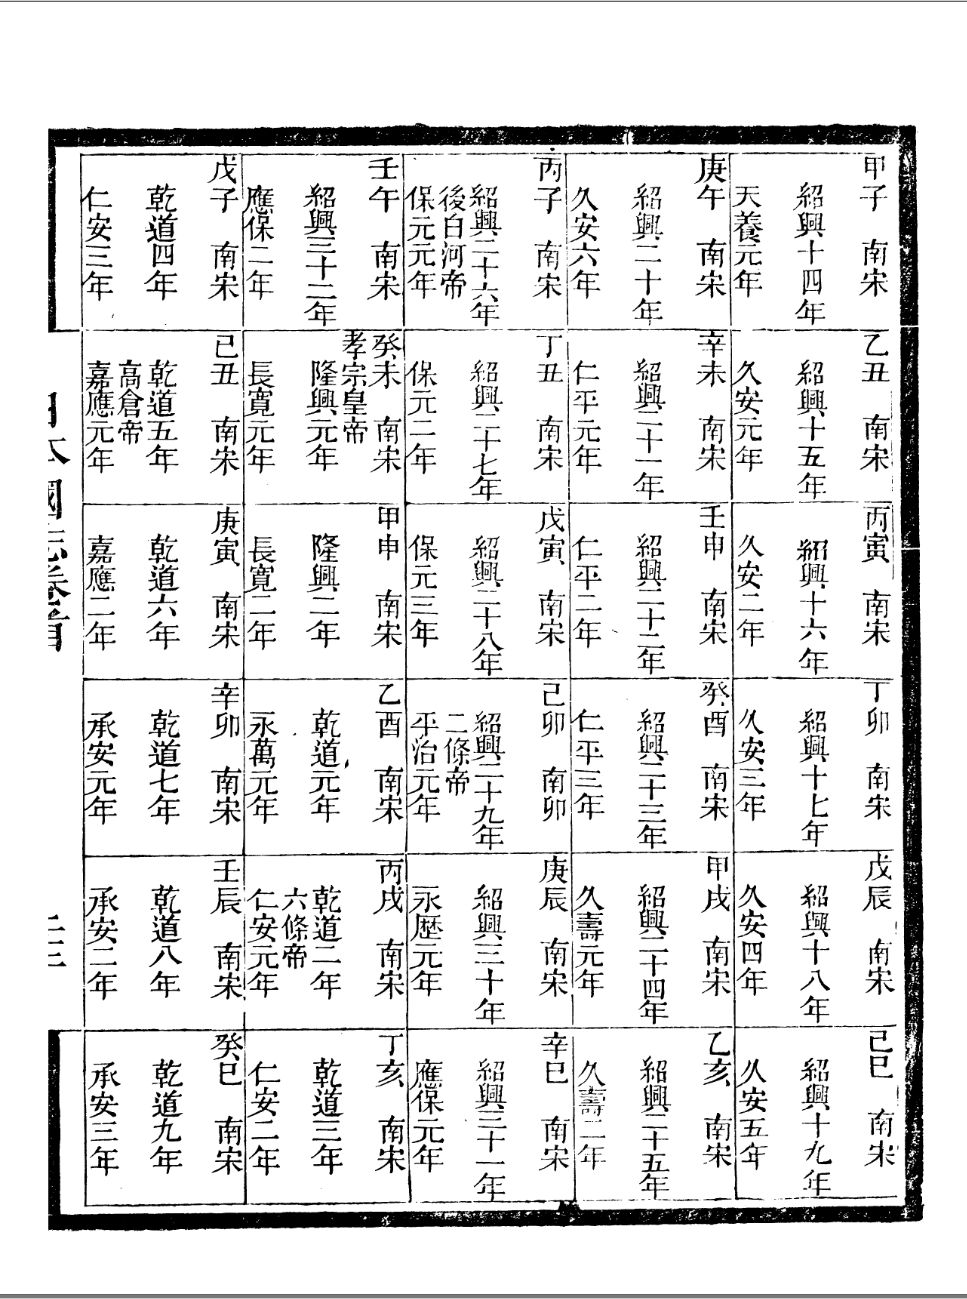 甲子　南宋
紹興十四年
天養元年
乙丑　南宋
紹興十五年
久安元年
丙寅　南宋
紹興十六年
久安二年
丁卯　南宋
紹興十七年
久安三年
戊辰　南宋
紹興十八年
久安四年
己巳　南宋
紹興十九年
久安五年
庚午　南宋
紹興二十年
久安六年
辛未　南宋
紹興二十一年
仁平元年
壬申　南宋
紹興二十二年
仁平二年
癸酉　南宋
紹興二十三年
仁平三年
甲戌　南宋
紹興二十四年
久壽元年
乙亥　南宋
紹興二十五年
久壽二年
丙子　南宋
紹興二十六年
後白河帝
保元元年
丁丑　南宋
紹興二十七年
保元二年
戊寅　南宋
紹興二十八年
保元三年
己卯　南卯
紹興二十九年
二條帝
平治元年
庚辰　南宋
紹興三十年
永歴元年
辛巳　南宋
紹興三十一年
應保元年
壬午　南宋
紹興三十二年
應保二年
癸未　南宋
孝宗皇帝
隆興元年
長寬元年
甲申　南宋
隆興二年
長寬二年
乙酉　南宋
乾道元年
永萬元年
丙戌　南宋
乾道二年
六條帝
仁安元年
丁亥　南宋
乾道三年
仁安二年
戊子　南宋
乾道四年
仁安三年
己丑　南宋
乾道五年
高倉帝
嘉應元年
庚寅　南宋
乾道六年
嘉應二年
辛卯　南宋
乾道七年
承安元年
壬辰　南宋
乾道八年
承安二年
癸巳　南宋
乾道九年
承安三年
日本國志卷首